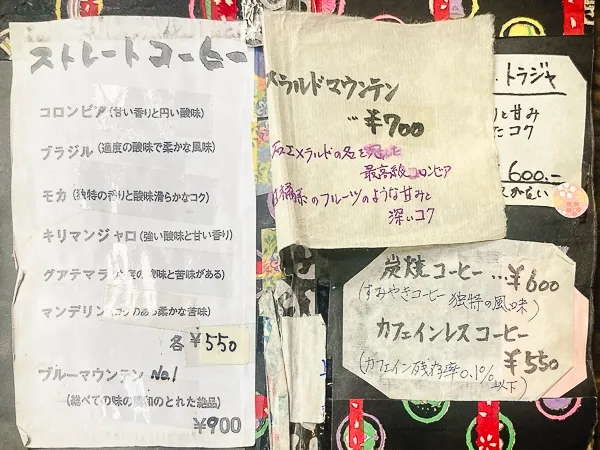 ストレートコーヒー
コロンビア (甘い香りと円い酸味)
ブラジル (適度の酸味で柔かな風味)
モカ (独特の香りと酸味滑らかなコク)
キリマンジャロ (強い酸味と甘い香り)
グアテマラ 度の酸味と苦味がある)
マンデリン (コクのある柔かな苦味)
各 ¥550
ブルーマウンテン No.1
(総べての味の調和のとれた絶品)
¥900
スラルドマウンテン
¥700
エメラルドの名を冠した
最高級コロンビア
系のフルーツのような甘みと
深いコク
トラジャ
と甘み
たコク
600.-
炭焼コーヒー … ¥600
(すみやきコーヒー 独特の風味)
カフェインレスコーヒー
¥550
(カフェイン残存率0.1%
以下)